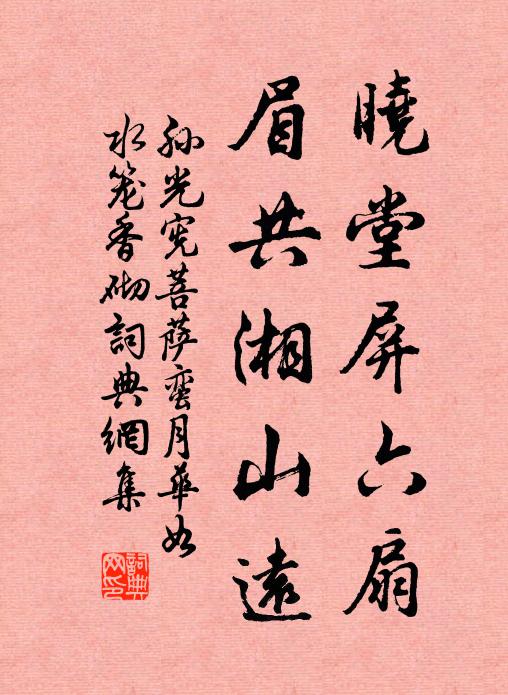 曉堂屏六扇
眉共湘山遠
孫光宪菩萨蛮月華如
水笼香砌詞典網集
詞典网印